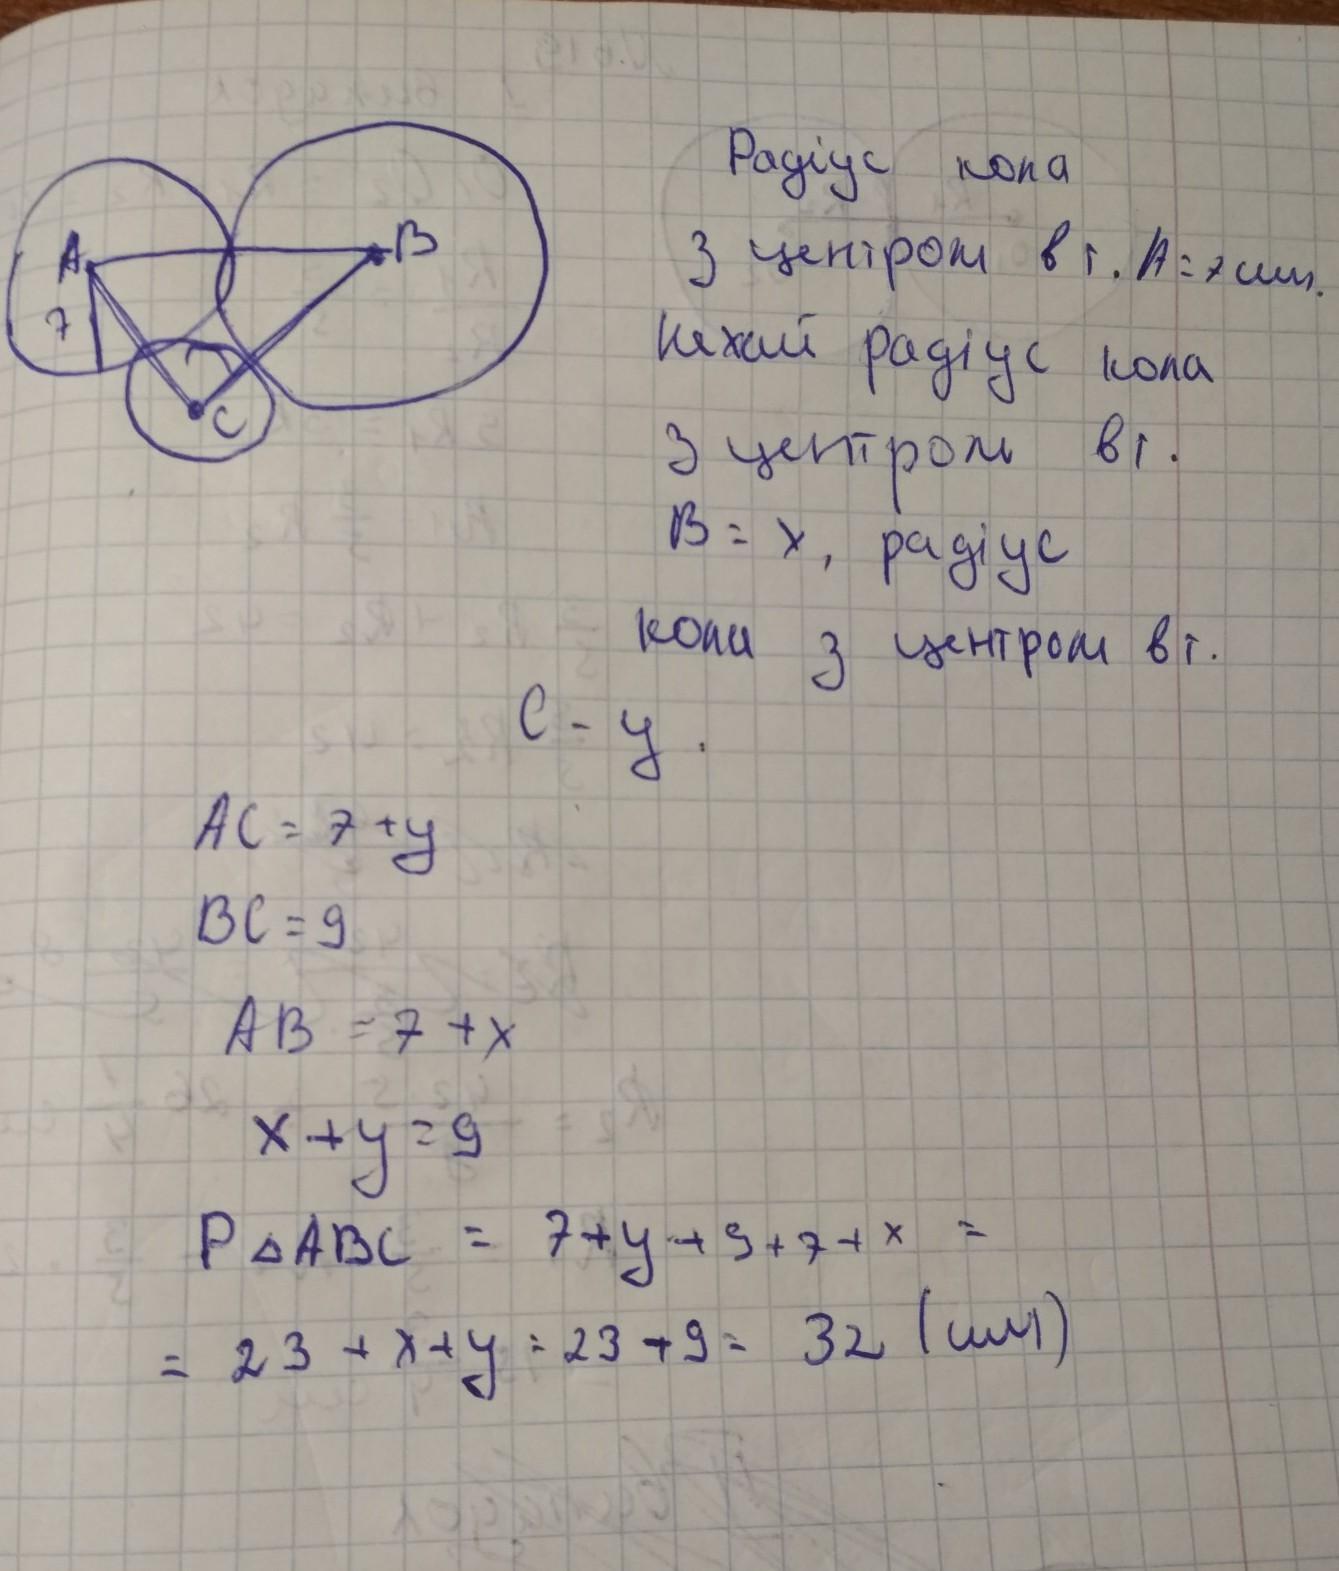 A
B
7
C
Радіус кола
з центром в т. A = 7 см.
Нехай радіус кола
з центром в т.
B = x, радіус
кола з центром в т.
C - y.
AC = 7 + y
BC = 9
AB = 7 + x
x + y = 9
P △ ABC = 7 + y + 9 + 7 + x =
= 23 + x + y = 23 + 9 = 32 (см)